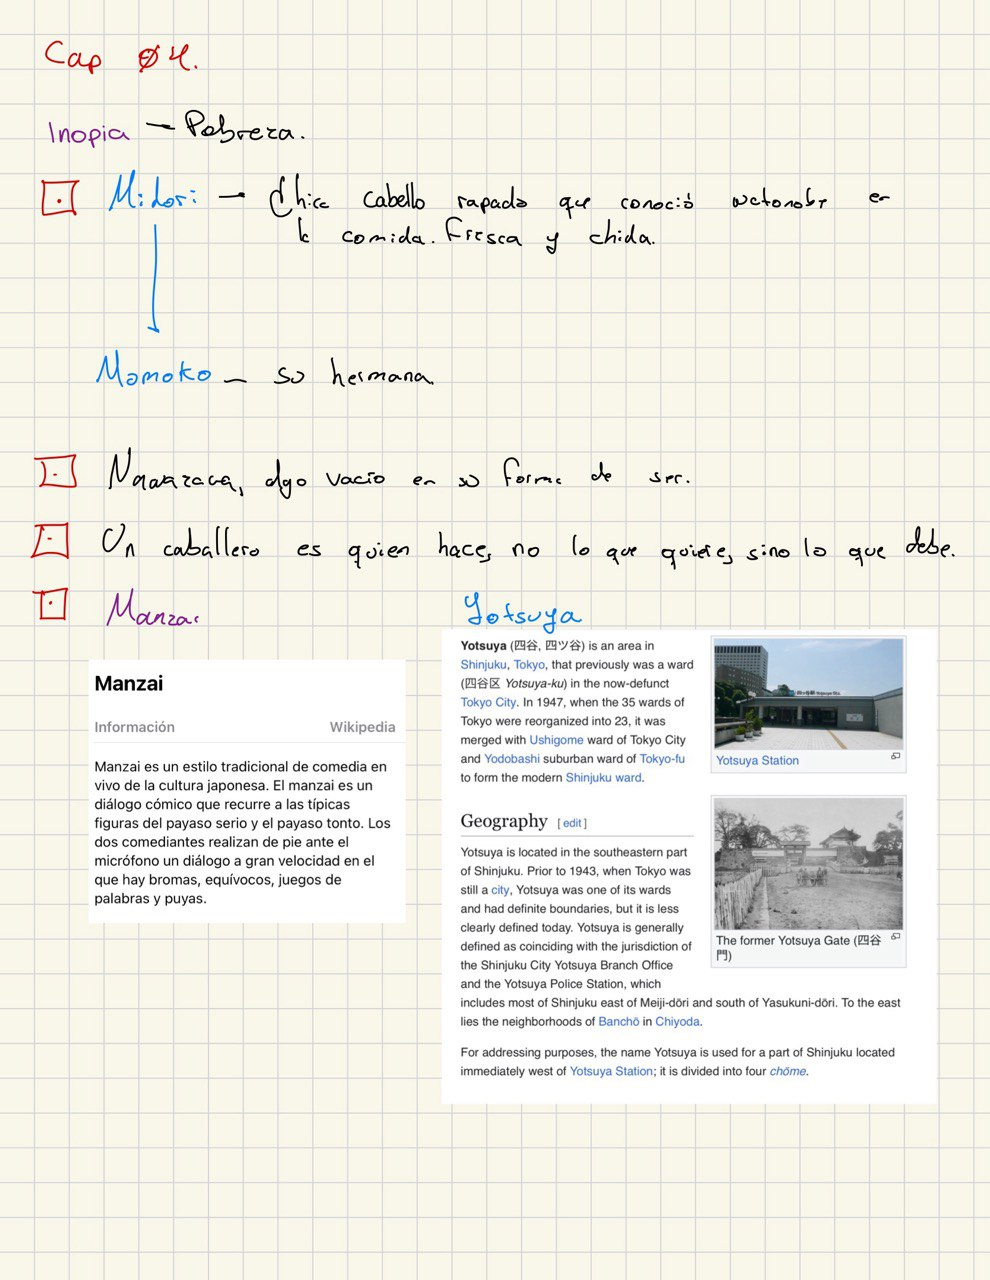 Cap 04.
Inopia — Pobreza.
Midori — Chica cabello rapado que conoció watanabe en
la comida. Fresca y chida.
Momoko — su hermana.
algo vacío en su forma de ser.
Un caballero es quien hace, no lo que quiere, sino lo que debe.
Manzai
Yotsuya
Manzai
Información Wikipedia
Manzai es un estilo tradicional de comedia en
vivo de la cultura japonesa. El manzai es un
diálogo cómico que recurre a las típicas
figuras del payaso serio y el payaso tonto. Los
dos comediantes realizan de pie ante el
micrófono un diálogo a gran velocidad en el
que hay bromas, equívocos, juegos de
palabras y puyas.
Yotsuya (四谷, 四ツ谷) is an area in
Shinjuku, Tokyo, that previously was a ward
(四谷区 Yotsuya-ku) in the now-defunct
Tokyo City. In 1947, when the 35 wards of
Tokyo were reorganized into 23, it was
merged with Ushigome ward of Tokyo City
and Yodobashi suburban ward of Tokyo-fu
to form the modern Shinjuku ward.
Yotsuya Station
Geography [ edit ]
Yotsuya is located in the southeastern part
of Shinjuku. Prior to 1943, when Tokyo was
still a city, Yotsuya was one of its wards
and had definite boundaries, but it is less
clearly defined today. Yotsuya is generally
defined as coinciding with the jurisdiction of
the Shinjuku City Yotsuya Branch Office
and the Yotsuya Police Station, which
includes most of Shinjuku east of Meiji-dōri and south of Yasukuni-dōri. To the east
lies the neighborhoods of Banchō in Chiyoda.
The former Yotsuya Gate (四谷
門)
For addressing purposes, the name Yotsuya is used for a part of Shinjuku located
immediately west of Yotsuya Station; it is divided into four chōme.